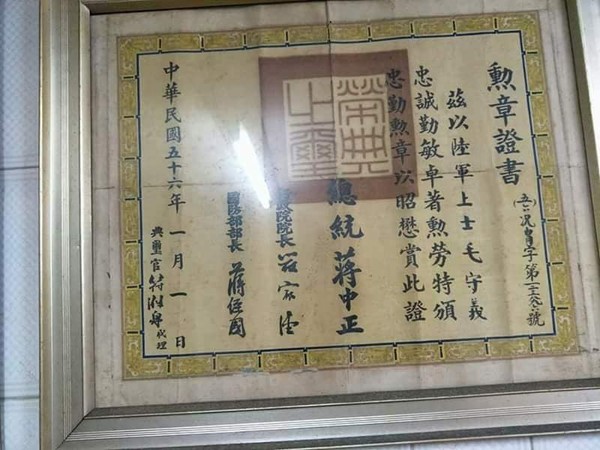 勲章證書
(五六)況書字第一二六六二號
茲以陸軍上士毛守義
忠誠勤敏卓著勲勞特頒
忠勤勲章以昭懋賞此證
榮典之璽
總統 蔣中正
行政院院長 嚴家淦
國防部部長 蔣經國
中華民國五十六年一月一日
典璽官 代理